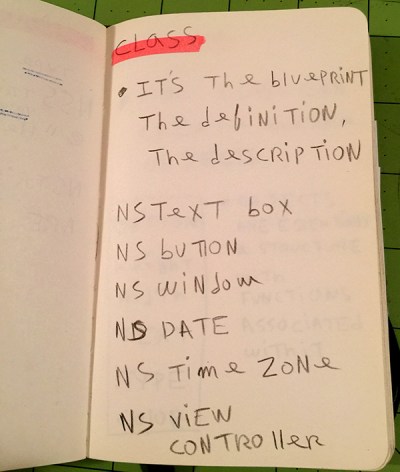 CLASS
• IT'S The blueprint
The definition,
The description
NSText box
NS button
NS window
NS DATE
NS Time Zone
NS View
Controller